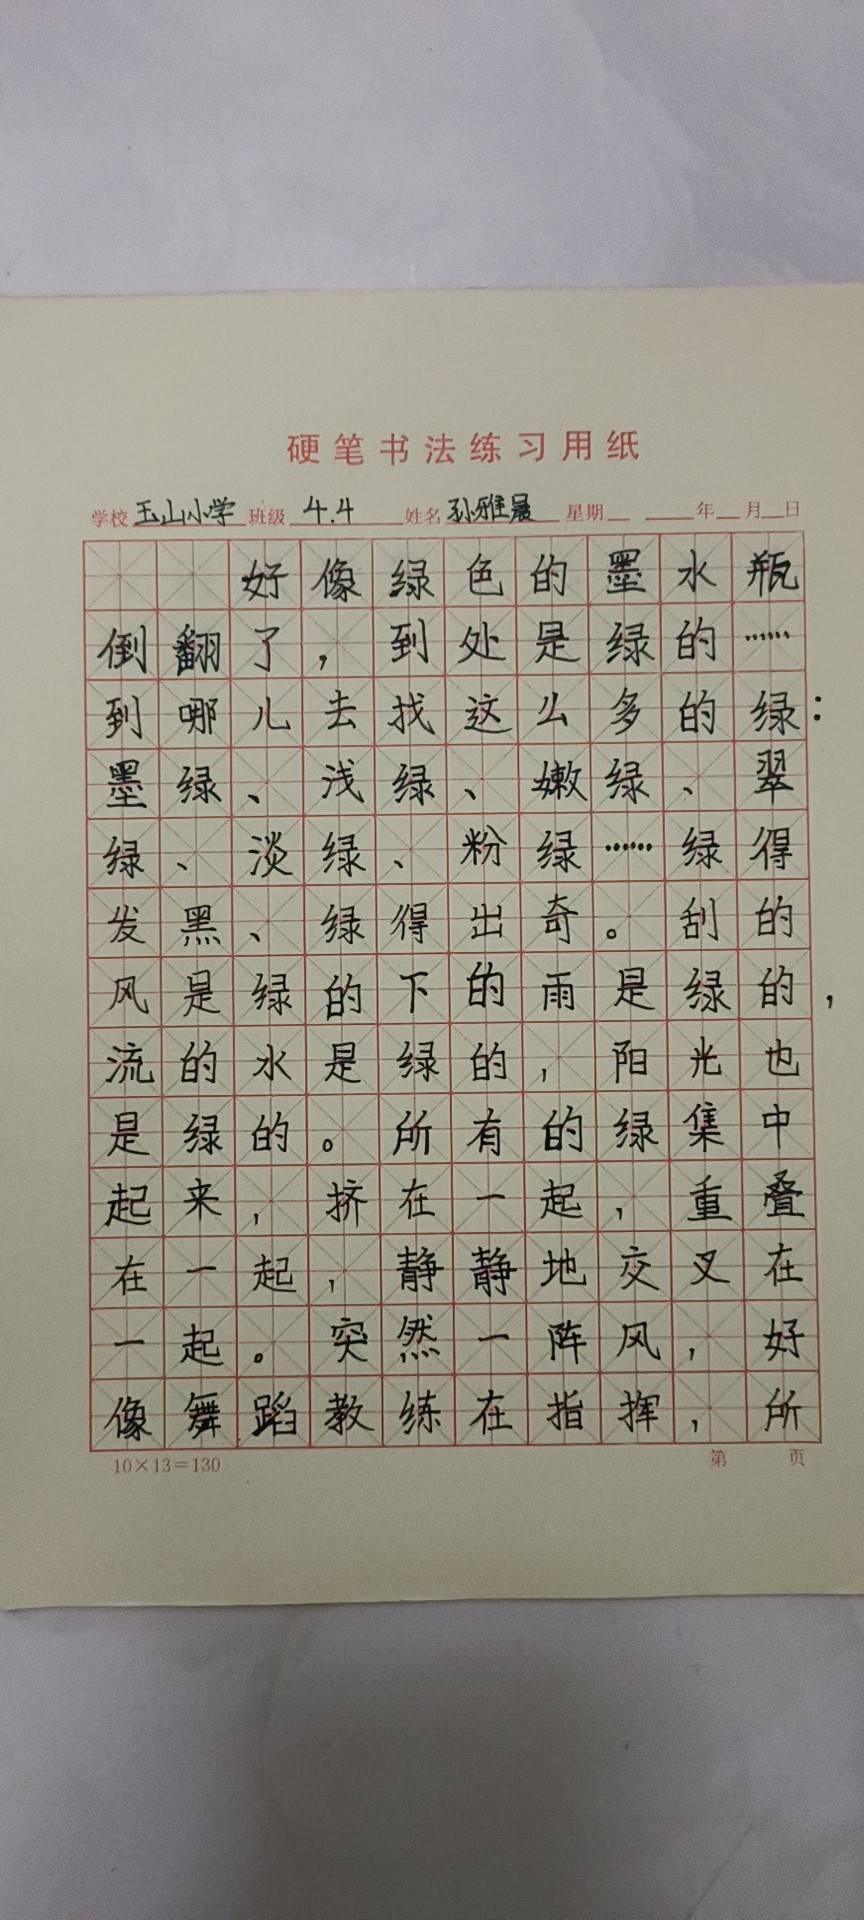 硬笔书法练习用纸
学校 玉山小学 班级 4.4 姓名 孙雅晨 星期 年 月 日
好像绿色的墨水瓶
倒翻了，到处是绿的……
到哪儿去找这么多的绿：
墨绿、浅绿、嫩绿、翠
绿、淡绿、粉绿……绿得
发黑、绿得出奇。刮的
风是绿的下的雨是绿的，
流的水是绿的，阳光也
是绿的。所有的绿集中
起来，挤在一起，重叠
在一起，静静地交叉在
一起。突然一阵风，好
像舞蹈教练在指挥，所
10×13=130 第 页